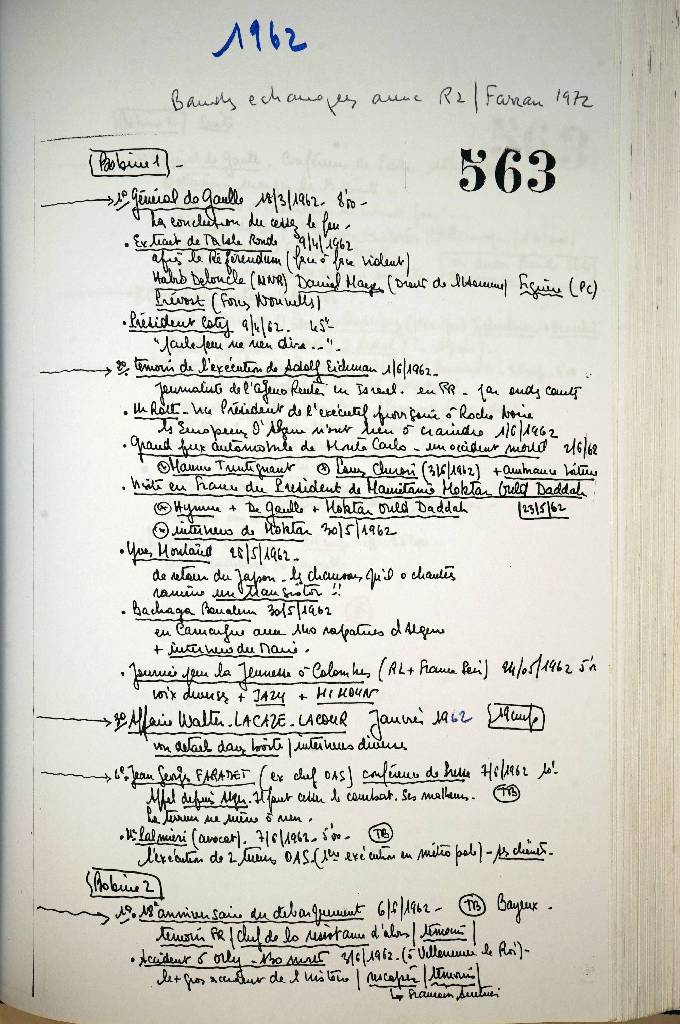 1962
Bandes echangees avec R2 / Farran 1972
Bobine 1 -
563
1º. Général de Gaulle 18/3/1962 - 8'00 -
La conclusion du cessez le feu -
. Extrait de Table Ronde 9/4/1962
après le Référendum (face à face vident)
Habib Deloncle (UNR) Daniel Mayer (Droits de l'homme) Figuère (PC)
Prévost (Forces Nouvelles)
. Président Coty 9/4/62 - 45"
2º. témoin de l'exécution de Adolf Eichman 1/6/1962 -
journaliste de l'agence Reuter en Israel. en FR -
. Un Président de l'exécutif provisoire à Roche Noire
les Européens d'Algérie n'ont rien à craindre 1/6/1962
. Grand prix automobile de Monte Carlo - un accident mortel 2/6/62
Maurice Trintignant (3/6/1962) + ambiance
. Visite en France du President de Mauritanie Moktar Ould Daddah
Hymne + De Gaulle + Moktar Ould Daddah 23/5/62
interview de Moktar 30/5/1962
. Yves Montand 28/5/1962 -
de retour du Japon - les chansons qu'il a chantées
ramène un transistor !!
. Bachaga Boualem 30/5/1962
en Camargue avec rapatriés d'Algérie
+ interview du Maire .
. Journée pour la Jeunesse à Colombes (RL + France Soir) 24/05/1962 5'
voix diverses + JAZY + MIMOUN
3º Affaire Walter - LACAZE - LACOUR Janvier 1962
voir detail dans boite / interviews diverses
4º. Jean Georges FARADET (ex chef OAS) conférence de Presse 7/6/1962 10'
Appel depuis Alger. Il faut cesser le combat. Ses malheurs. TB
La terreur ne mène à rien .
. Me Palmieri (avocat). 7/6/1962 - 5'00 - TB
l'exécution de 2 tueurs OAS (1ère exécution en métropole) -
Bobine 2
1º. 18e anniversaire du debarquement 6/6/1962 - TB Bayeux -
témoin FR / chef de la resistance d'alors / témoin /
. Accident à Orly - 130 morts 3/6/1962 - (à Villeneuve le Roi) -
le + gros accident de l'histoire / rescapée / témoin /